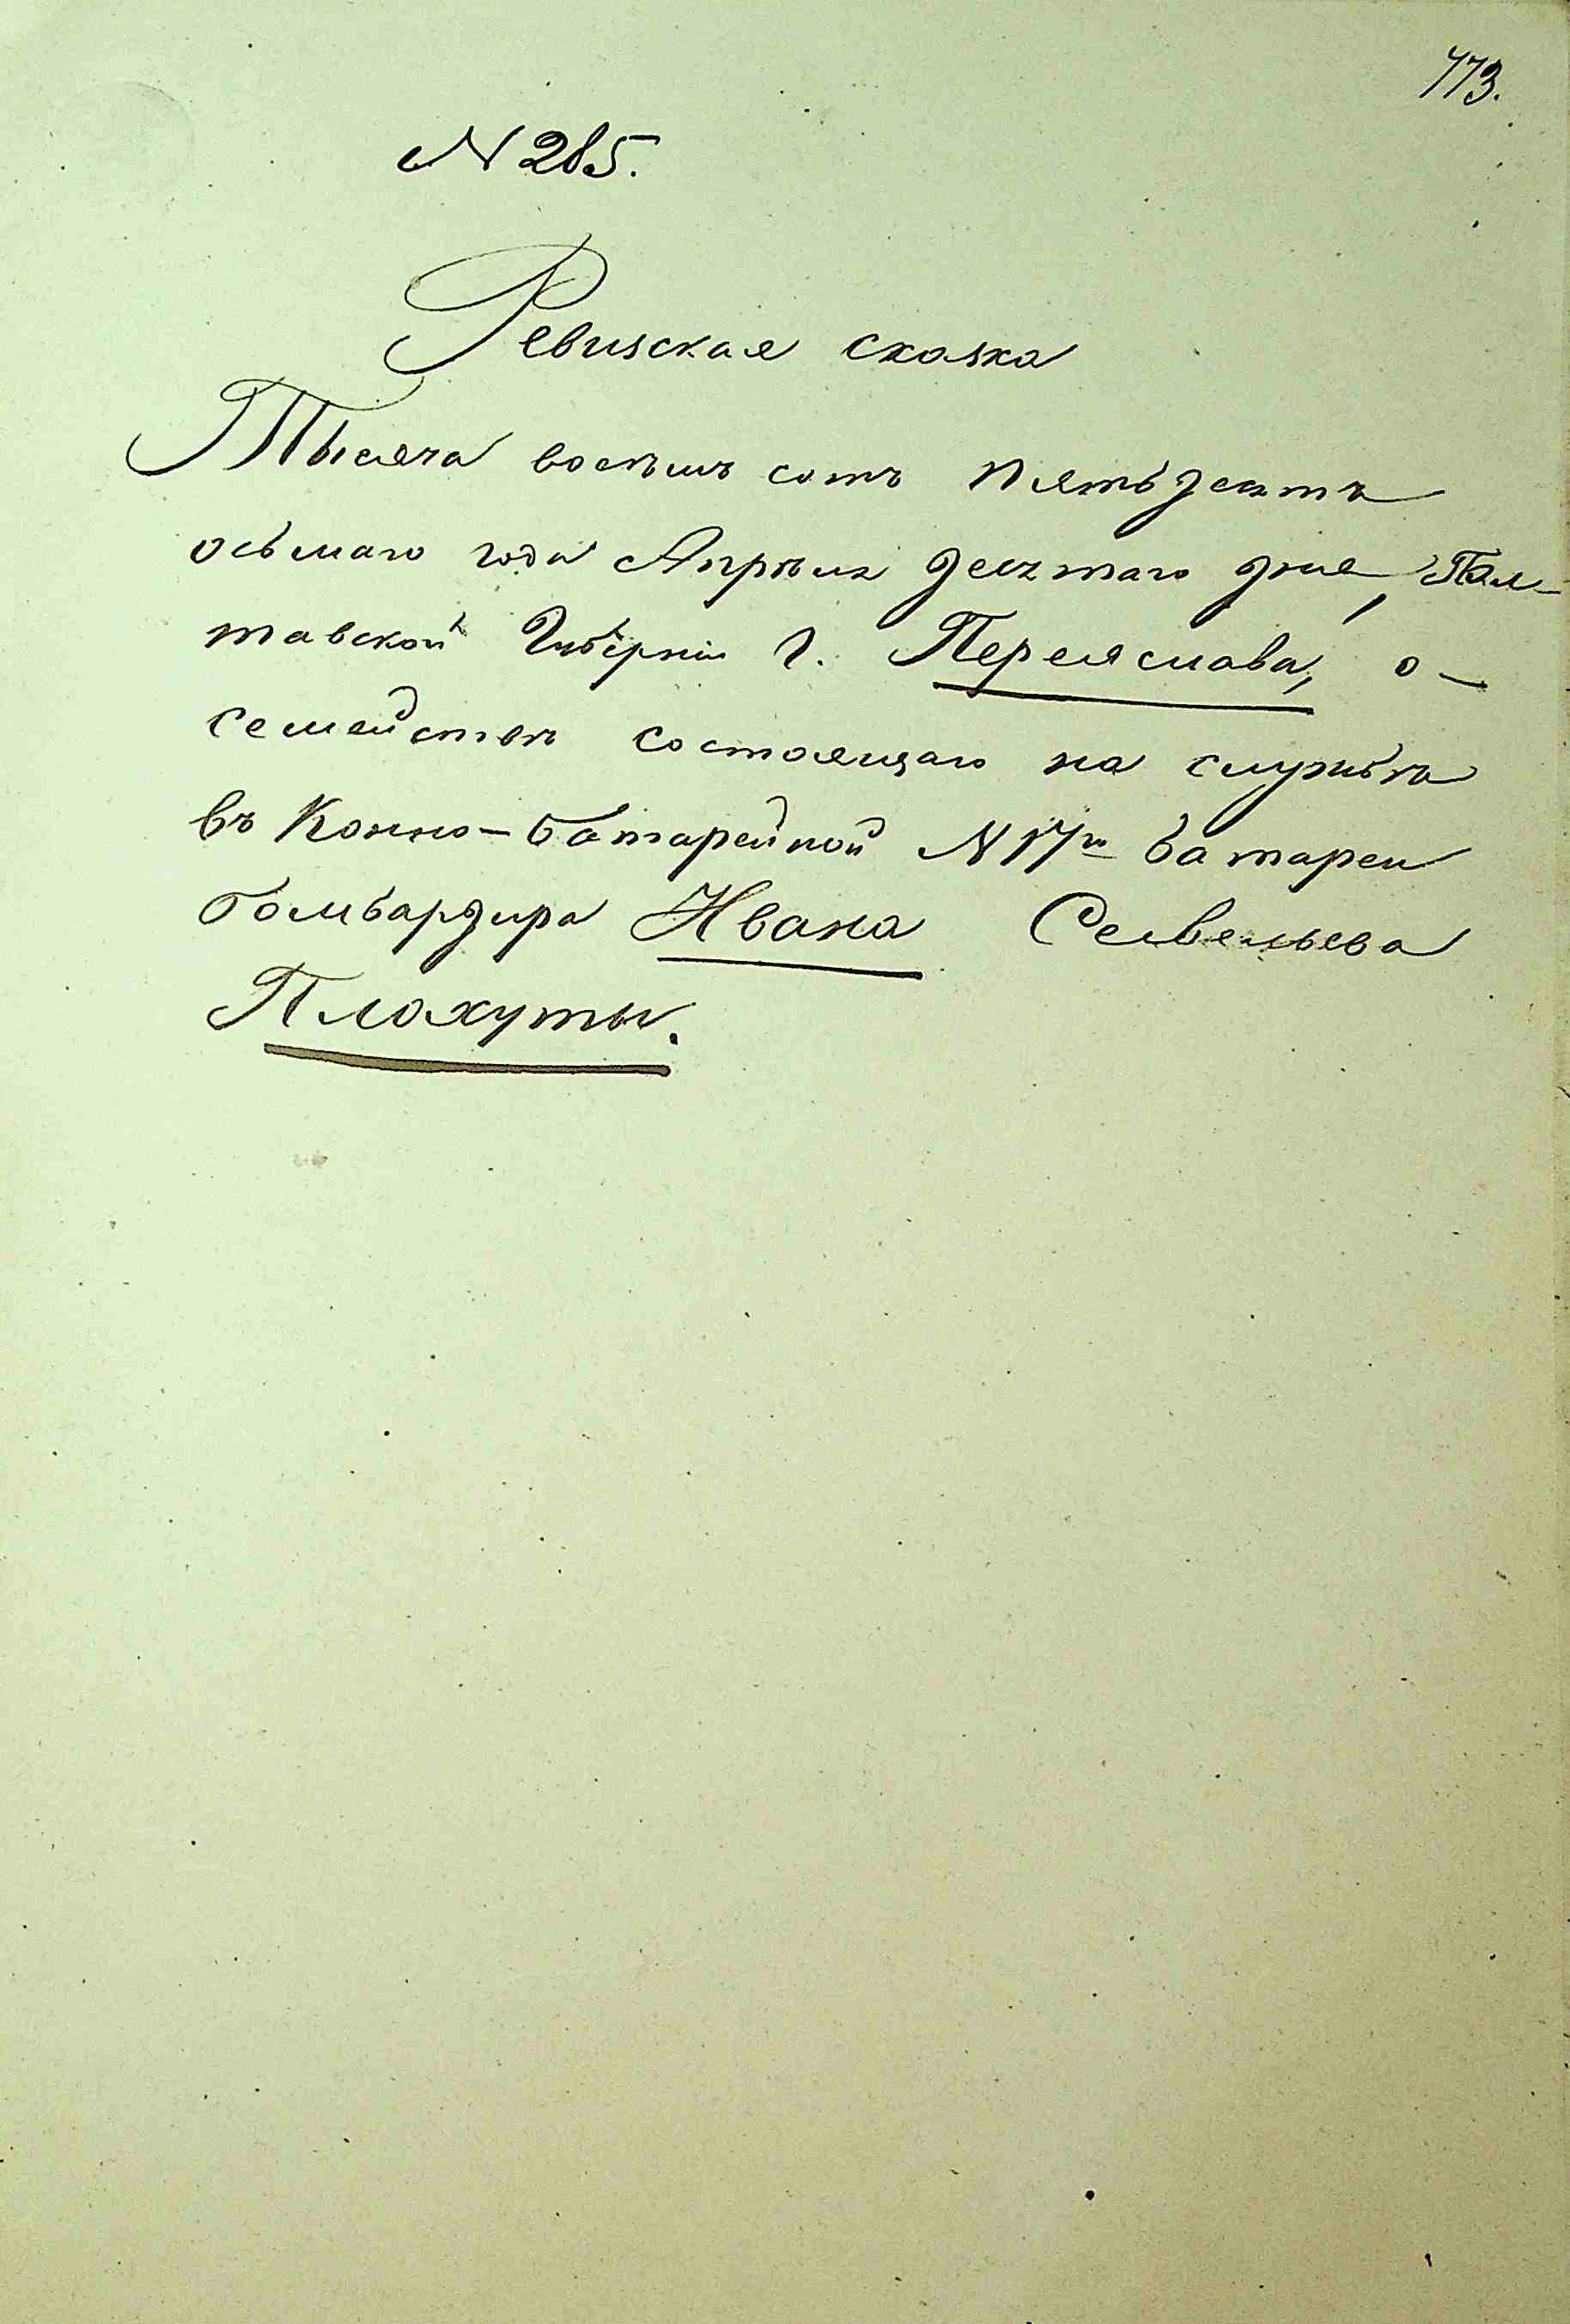 773.
N 285.
Ревизская сказка
Тысяча восемь сотъ пятьдесятъ
осьмаго года Апрѣля десятаго дня, Пол-
тавской Губерніи Г. Переяслава, о
семействѣ состоящаго на службѣ
въ Конно-батарейной N 17й батареи
бомбардира Ивана Савельева
Плахуты.